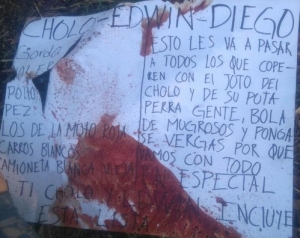 CHOLO-EDWIN-DIEGO
Gorda
ESTO LES VA A PASAR
A TODOS LOS QUE COPE-
REN CON EL JOTO DEL
CHOLO Y DE SU PUTA
PERRA GENTE, BOLA
DE MUGROSOS Y PONGA
SE VERGAS POR QUE
VAMOS CON TODO
POLLO
PEZ.
LOS DE LA MOTO ROJA
CARROS BLANCOS
CAMIONETA BLANCA
ESPECIAL
TI CHOLO Y
INCLUYE
ESTA LISTA